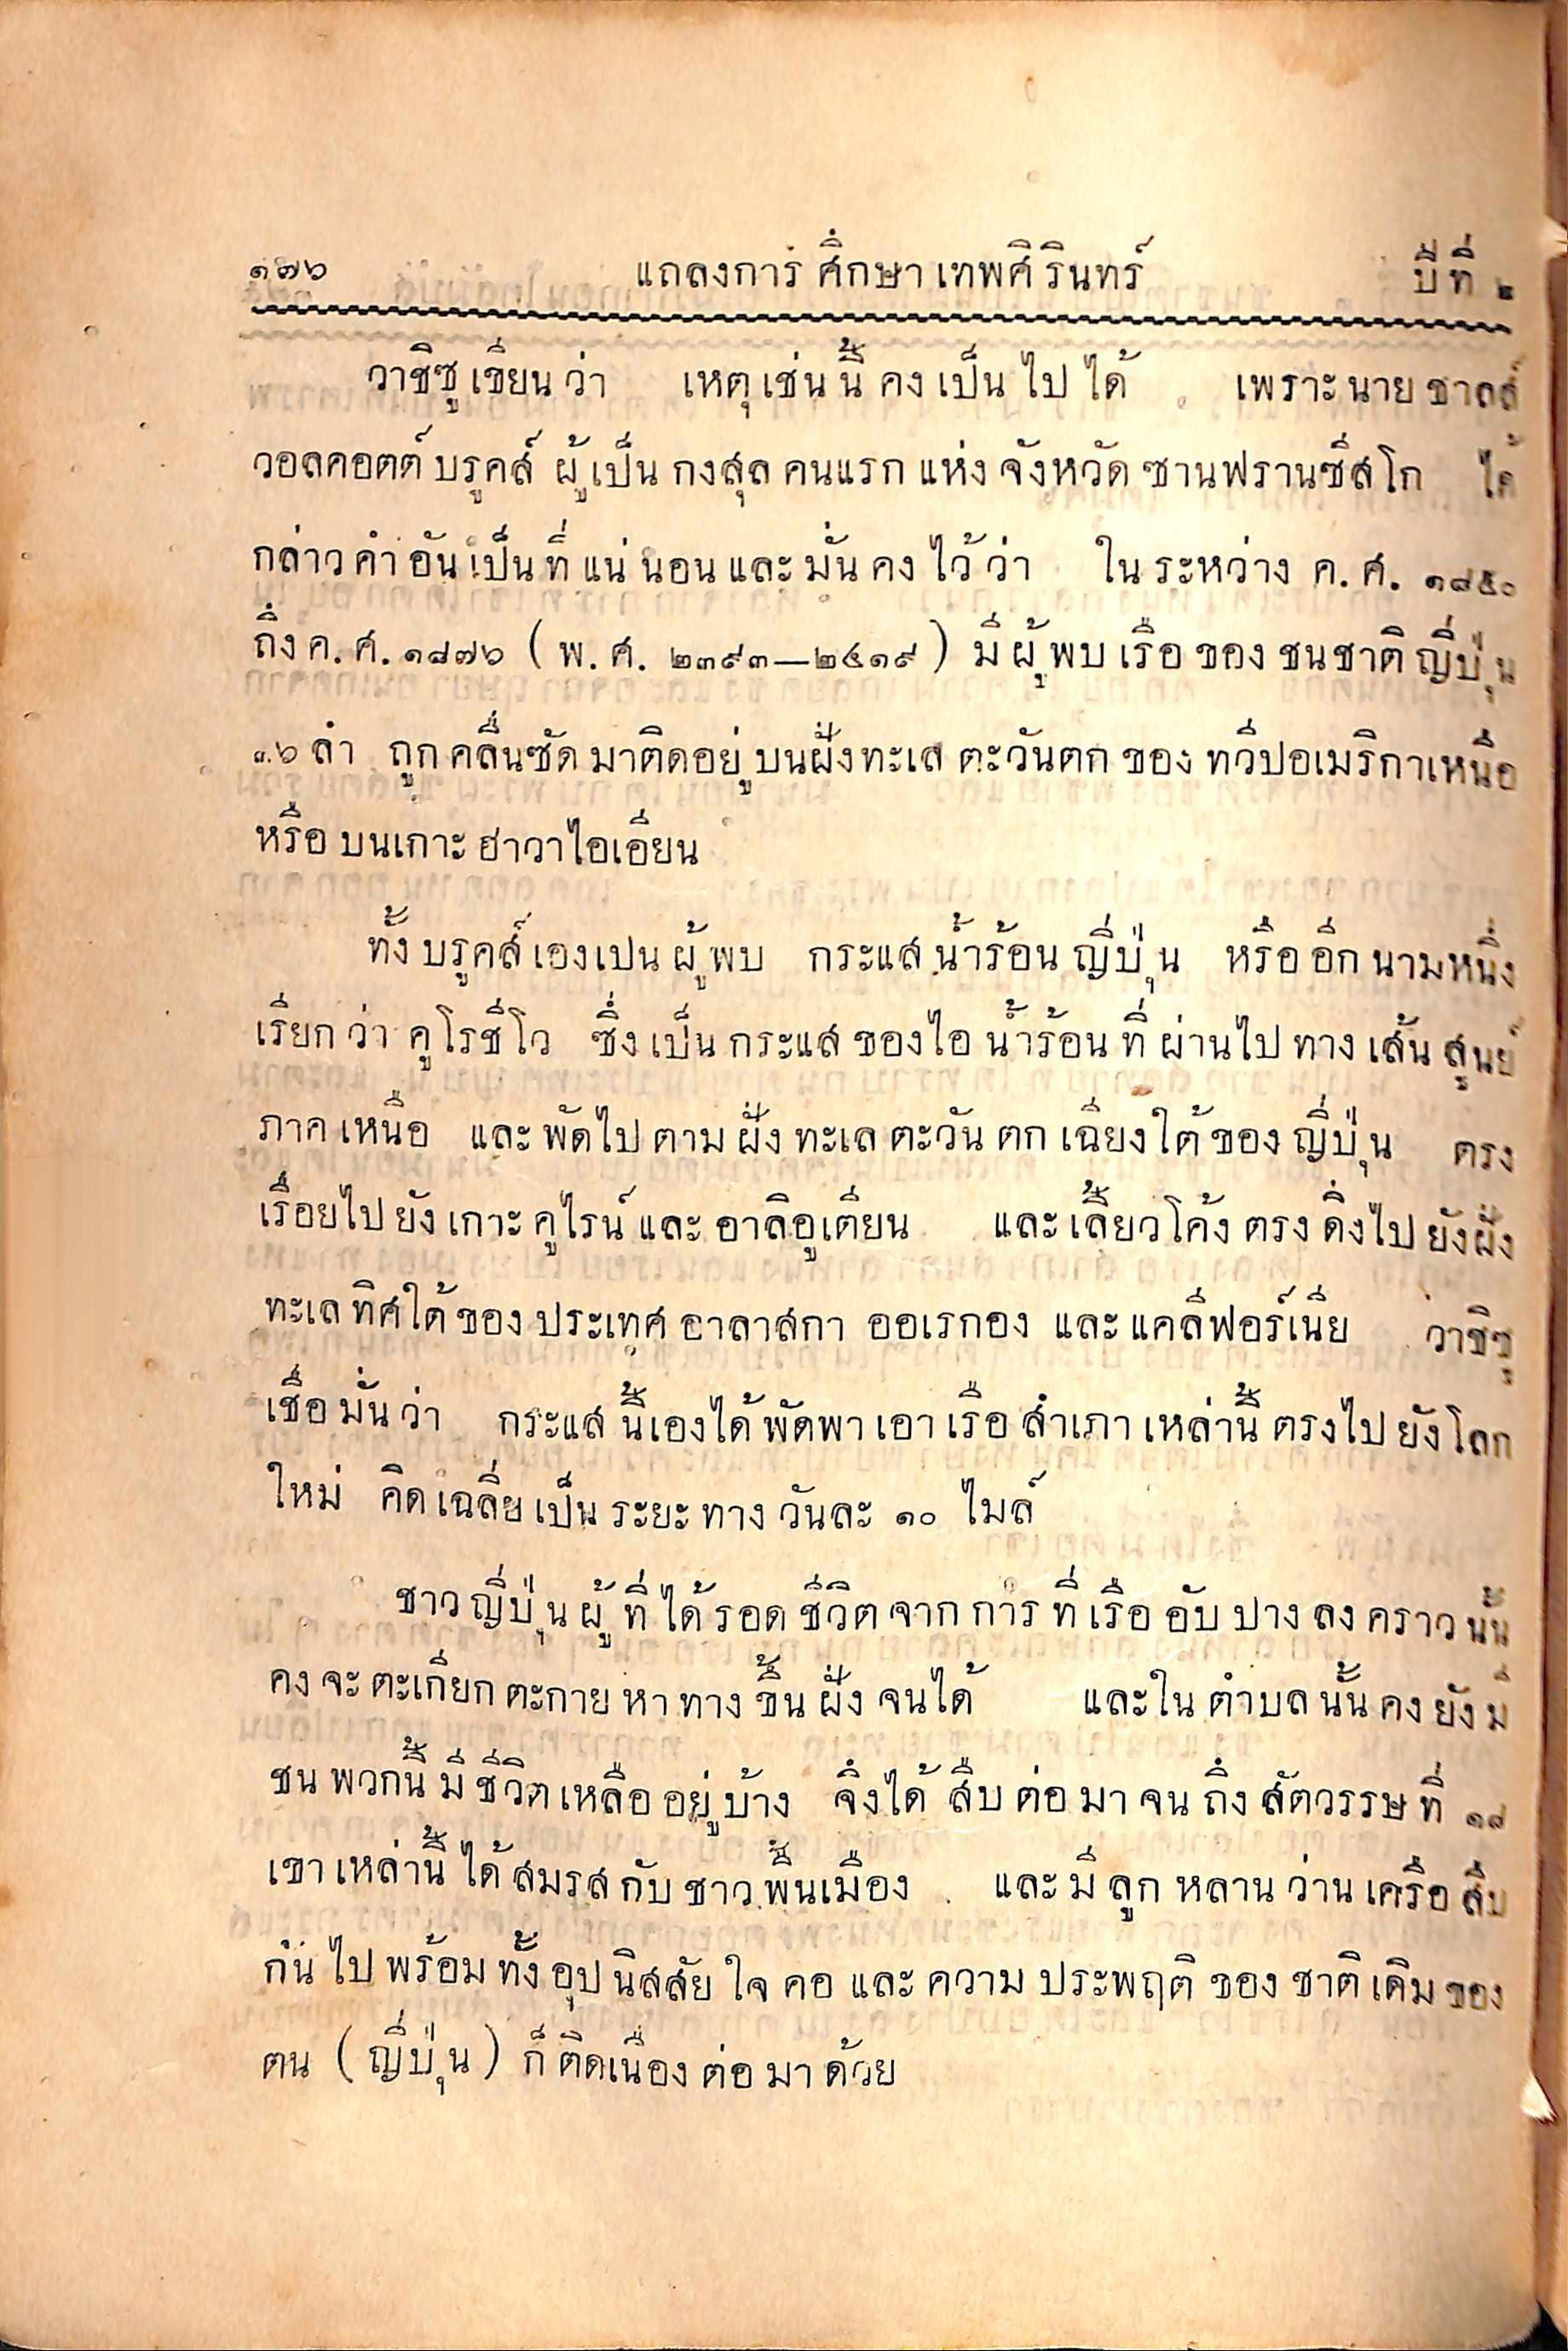 ๑๗๖ แถลงการ์ศึกษาเทพศิรินทร์ ปีที่ ๒
วาชิซูเขียนว่า เหตุเช่นนี้คงเป็นไปได้ เพราะนายชาลส์
วอลคอตต์ บรูคส์ ผู้เป็นกงสุลคนแรกแห่งจังหวัดซานฟรานซิสโก ได้
กล่าวคำอันเป็นที่แน่นอนและมั่นคงไว้ว่า ในระหว่าง ค.ศ. ๑๘๕๐
ถึง ค.ศ. ๑๘๗๖ (พ.ศ. ๒๓๙๓—๒๔๑๙) มีผู้พบเรือของชนชาติญี่ปุ่น
ลำ ถูกคลื่นซัดมาติดอยู่บนฝั่งทะเลตะวันตกของทวีปอเมริกาเหนือ
หรือบนเกาะฮาวาไอเอียน
ทั้งบรูคส์เองเปนผู้พบ กระแสน้ำร้อนญี่ปุ่น หรืออีกนามหนึ่ง
เรียกว่า คูโรชิโว ซึ่งเป็นกระแสของไอน้ำร้อนที่ผ่านไปทางเส้นสูนย์
ภาคเหนือ และพัดไปตามฝั่งทะเลตะวันตกเฉียงใต้ของญี่ปุ่น ตรง
เรื่อยไปยังเกาะคูไรน์และอาลิอูเตียน และเลี้ยวโค้งตรงดิ่งไปยังฝั่ง
ทะเลทิศใต้ของประเทศอาลาสกา ออเรกอง และแคลิฟอร์เนีย วาชิซู
เชื่อมั่นว่า กระแสนี้เองได้พัดพาเอาเรือสำเภาเหล่านี้ตรงไปยังโลก
ใหม่ คิดเฉลี่ยเป็นระยะทางวันละ ๑๐ ไมล์
ชาวญี่ปุ่นผู้ที่ได้รอดชีวิตจากการที่เรืออับปางลงคราวนั้น
คงจะตะเกียกตะกายหาทางขึ้นฝั่งจนได้ และในตำบลนั้นคงยังมี
ชนพวกนี้มีชีวิตเหลืออยู่บ้าง จึงได้สืบต่อมาจนถึงสัตวรรษที่ ๑๘
เขาเหล่านี้ได้สมรสกับชาวพื้นเมือง และมีลูกหลานว่านเครือสืบ
กันไปพร้อมทั้งอุปนิสสัยใจคอและความประพฤติของชาติเดิมของ
ตน (ญี่ปุ่น) ก็ติดเนื่องต่อมาด้วย